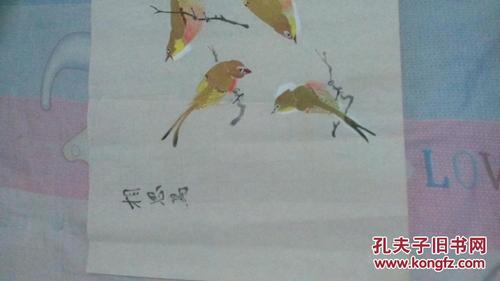 相思鸟
LOV
孔夫子旧书网
www.kongfz.com